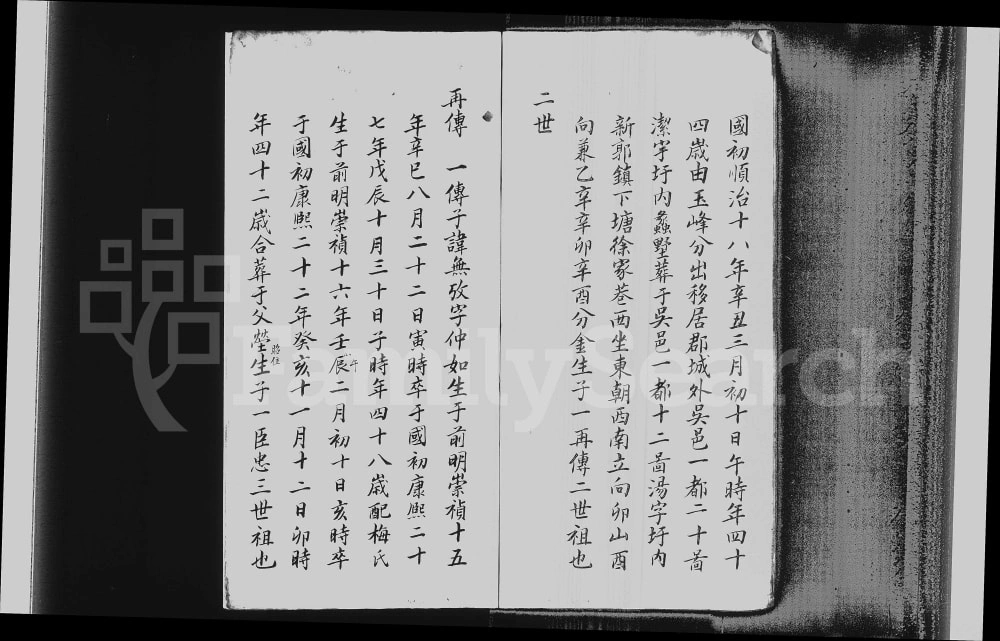 國初順治十八年辛丑三月初十日午時年四十
四歲由玉峰分出移居郡城外吳邑一都二十啚
潔字圩內蠡墅葬于吳邑一都十二啚湯字圩內
新郭鎮下塘徐家巷西坐東朝西南立向卯山酉
向兼乙辛辛卯辛酉分金生子一再傳二世祖也
二世
再傳 一傳子諱無攷字仲如生于前明崇禎十五
年辛巳八月二十二日寅時卒于國初康熙二十
七年戊辰十月三十日子時年四十八歲配梅氏
生于前明崇禎十六年壬辰午二月初十日亥時卒
于國初康熙二十二年癸亥十一月十二日卯時
年四十二歲合葬于父塋昭位生子一臣忠三世祖也
FamilySearch